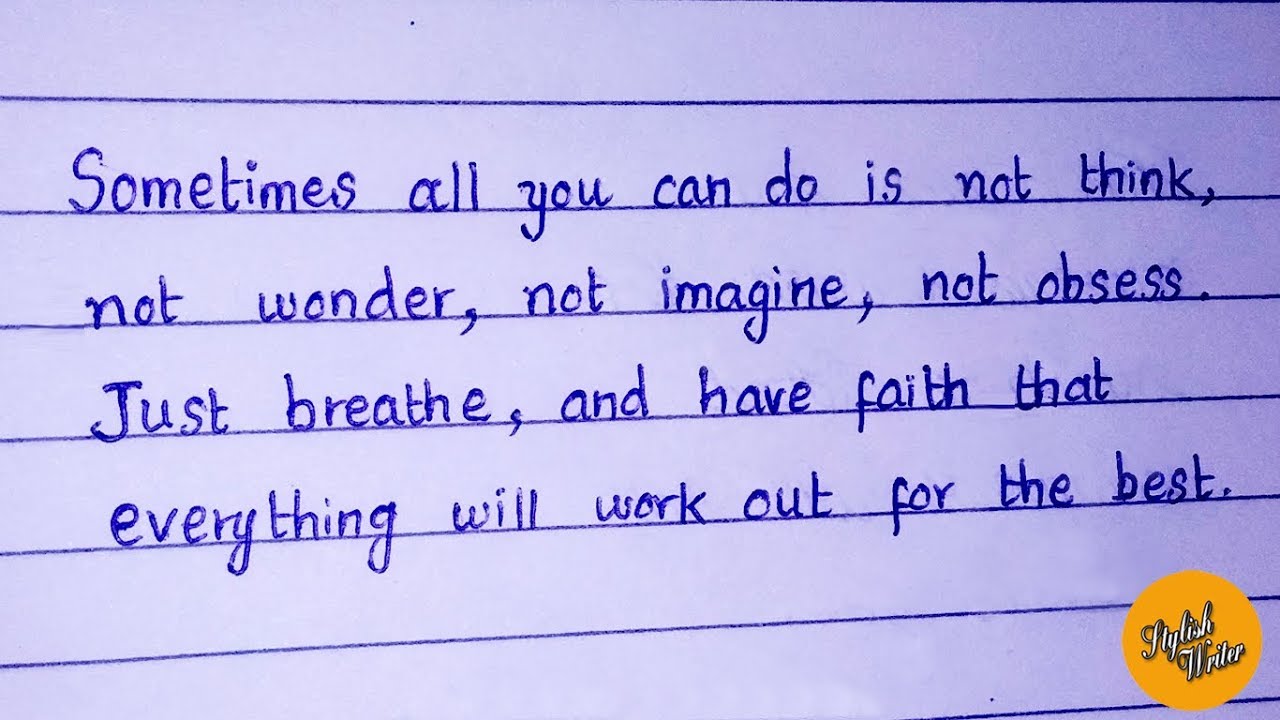 Sometimes all you can do is not think,
not wonder, not imagine, not obsess.
Just breathe, and have faith that
everything will work out for the best.
Stylish
Writer